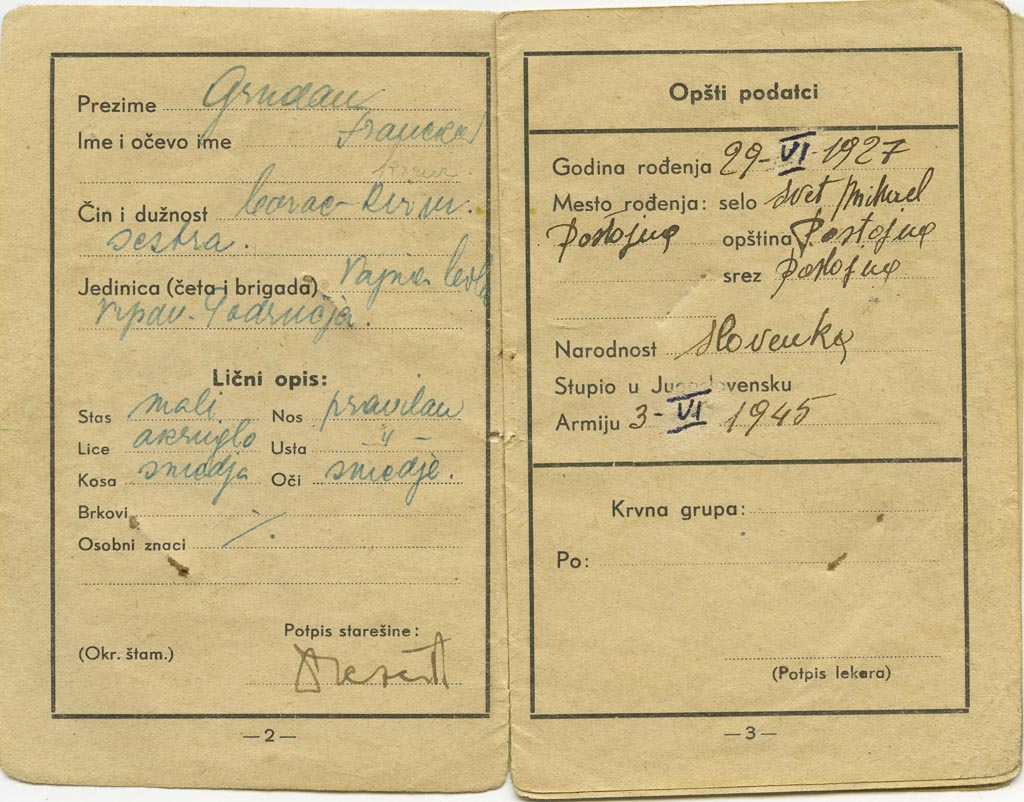 Prezime Grudau
Ime i očevo ime Francka
Čin i dužnost borac-
sestra.
Jedinica (četa i brigada) Vojna
Vipav. Področja.
Lični opis:
Stas mali Nos pravilan
Lice okruglo Usta "
Kosa smedja Oči smedje.
Brkovi
Osobni znaci /.
Potpis starešine:
(Okr. štam.)
—2—
Opšti podatci
Godina rođenja 29-VI-1927
Mesto rođenja: selo Svet Mihael
Postojna opština Postojna
srez Postojna
Narodnost Slovenka
Stupio u Jugoslovensku
Armiju 3-VI 1945
Krvna grupa:
Po:
(Potpis lekara)
—3—